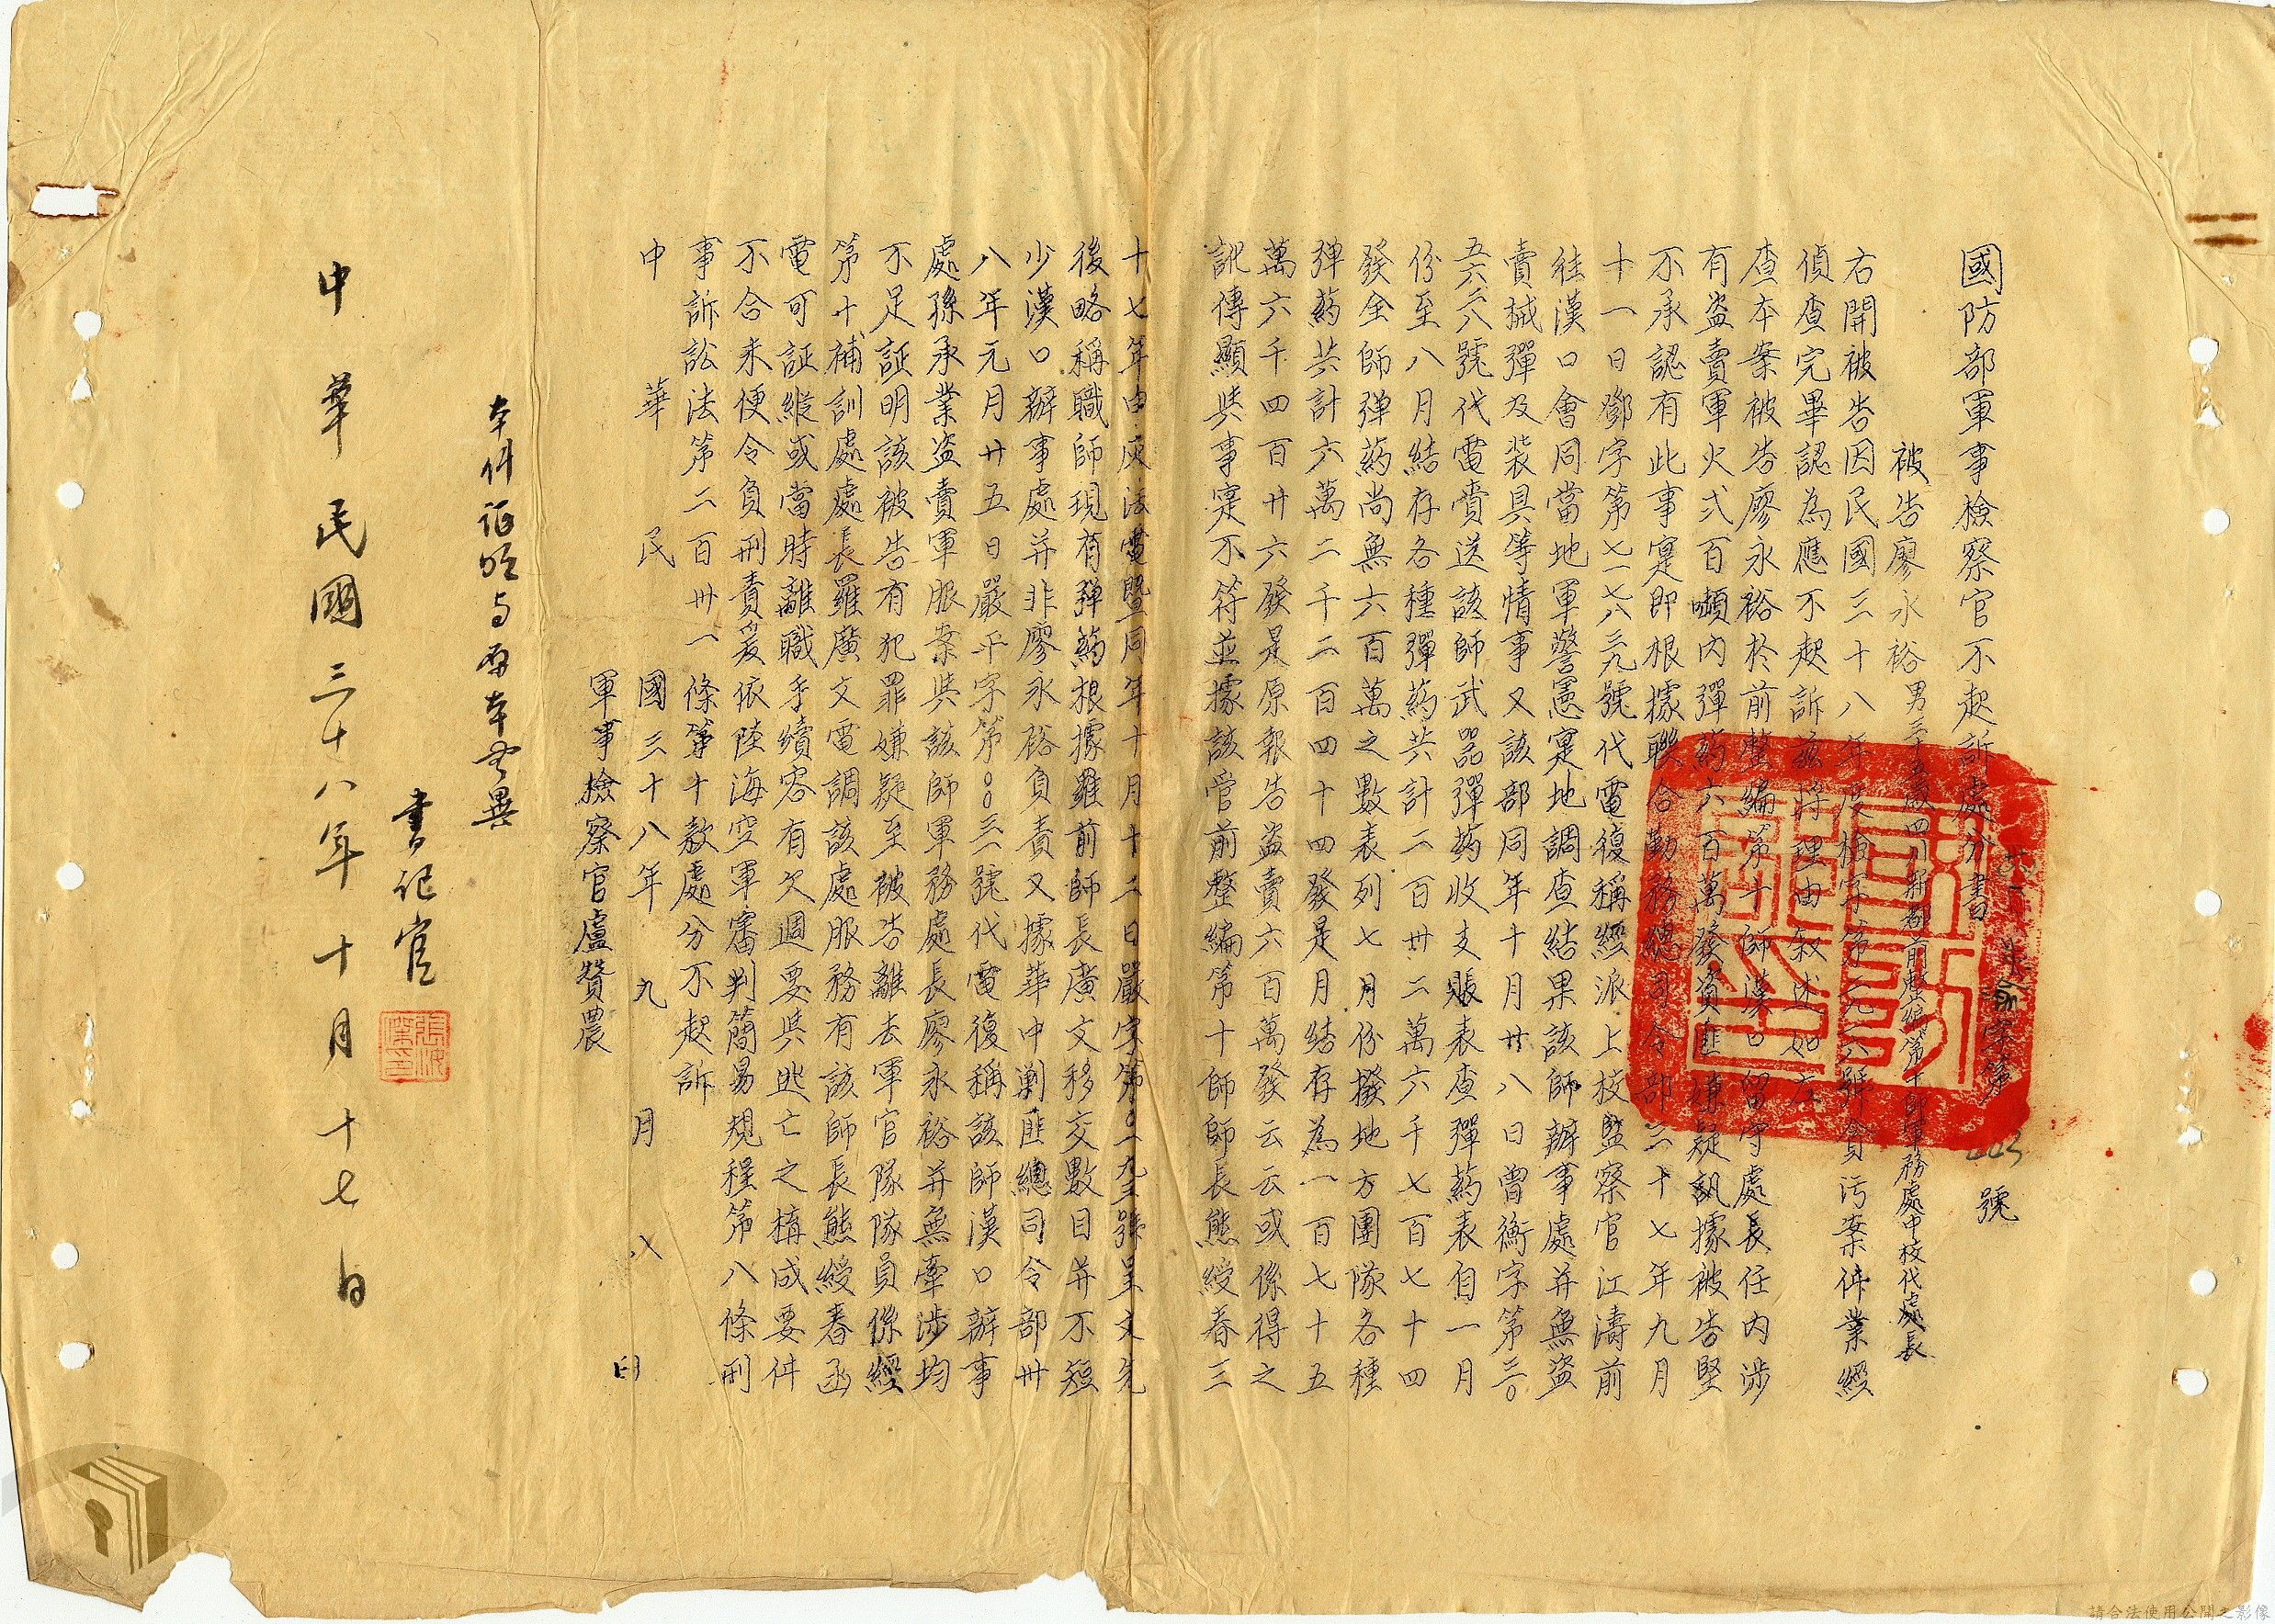 國防部軍事檢察官不起訴處分書
字第 號
被告廖永裕男三十五歲四川新都前整編第十師軍務處中校代處長
右開被告因民國三十八年度檢字第二九一六號貪污案件業經
偵查完畢認為應不起訴茲將理由敘述如左
查本案被告廖永裕於前整編第十師漢口留守處長任內涉
有盜賣軍火弍百噸內彈葯六百萬發資匪嫌疑訊據被告堅
不承認有此事寔即根據聯合勤務總司令部三十七年九月
十一日鄧字第七一七八三九號代電復稱經派上校監察官江濤前
往漢口會同當地軍警憲寔地調查結果該師辦事處并無盜
賣械彈及裝具等情事又該部同年十月廿八日曾衡字第三〇
五六二八號代電賫送該師武器彈葯收支賬表查彈葯表自一月
份至八月結存各種彈葯共計二百卅二萬六千七百七十四
發全師彈葯尚無六百萬之數表列七月份撥地方團隊各種
彈葯共計六萬二千二百四十四發是月結存為一百七十五
萬六千四百廿六發是原報告盜賣六百萬發云云或係得之
訛傳顯與事寔不符並據該管前整編第十師師長熊綬春三
十七年由灰法電暨同年十月十二日嚴字第〇一九三號呈文先
後略稱職師現有彈葯根據羅前師長廣文移交數目并不短
少漢口辦事處并非廖永裕負責又據華中剿匪總司令部卅
八年元月廿五日嚴平字第〇〇三一號代電復稱該師漢口辦事
處孫承業盜賣軍服案與該師軍務處長廖永裕并無牽涉均
不足証明該被告有犯罪嫌疑至被告離去軍官隊隊員係經
第十補訓處處長羅廣文電調該處服務有該師長熊綬春函
電可証縱或當時離職手續容有欠週要與逃亡之構成要件
不合未便令負刑責爰依陸海空軍審判簡易規程第八條刑
事訴訟法第二百卅一條第十款處分不起訴
中華民國三十八年九月八日
軍事檢察官盧贊農
本件証明与原本無異
書記官
中華民國三十八年十月十七日
請合法使用公開之影像